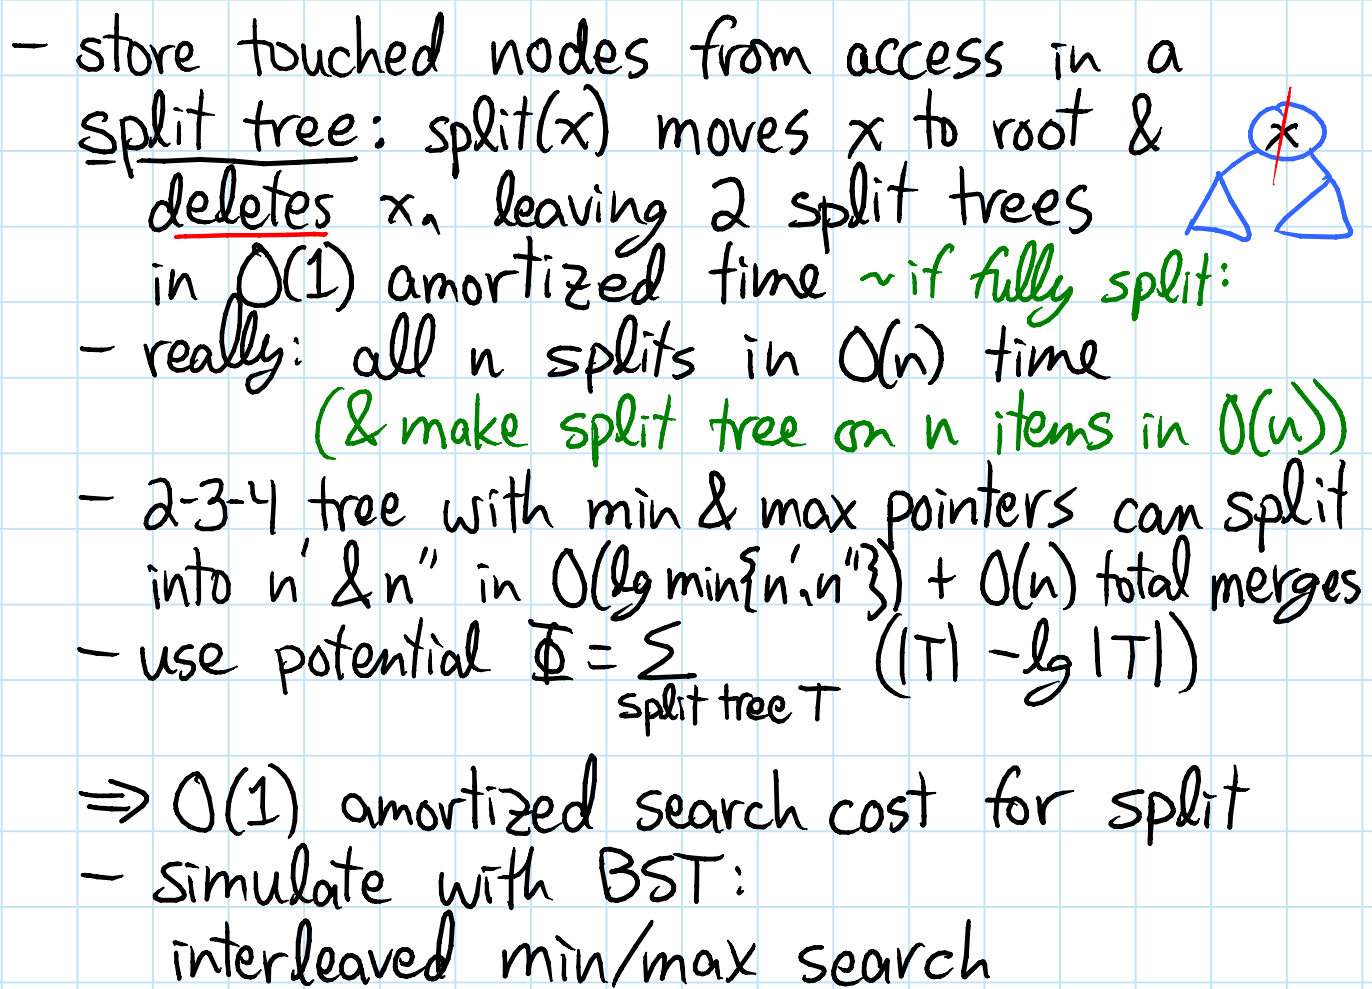 - store touched nodes from access in a
split tree: split(x) moves x to root &
x
deletes x, leaving 2 split trees
in O(1) amortized time ~ if fully split:
- really: all n splits in O(n) time
(& make split tree on n items in O(n))
- 2-3-4 tree with min & max pointers can split
into n' & n'' in O(lg min{n',n''}) + O(n) total merges
- use potential Φ = Σ (|T| - lg |T|)
split tree T
⇒ O(1) amortized search cost for split
- simulate with BST:
interleaved min/max search